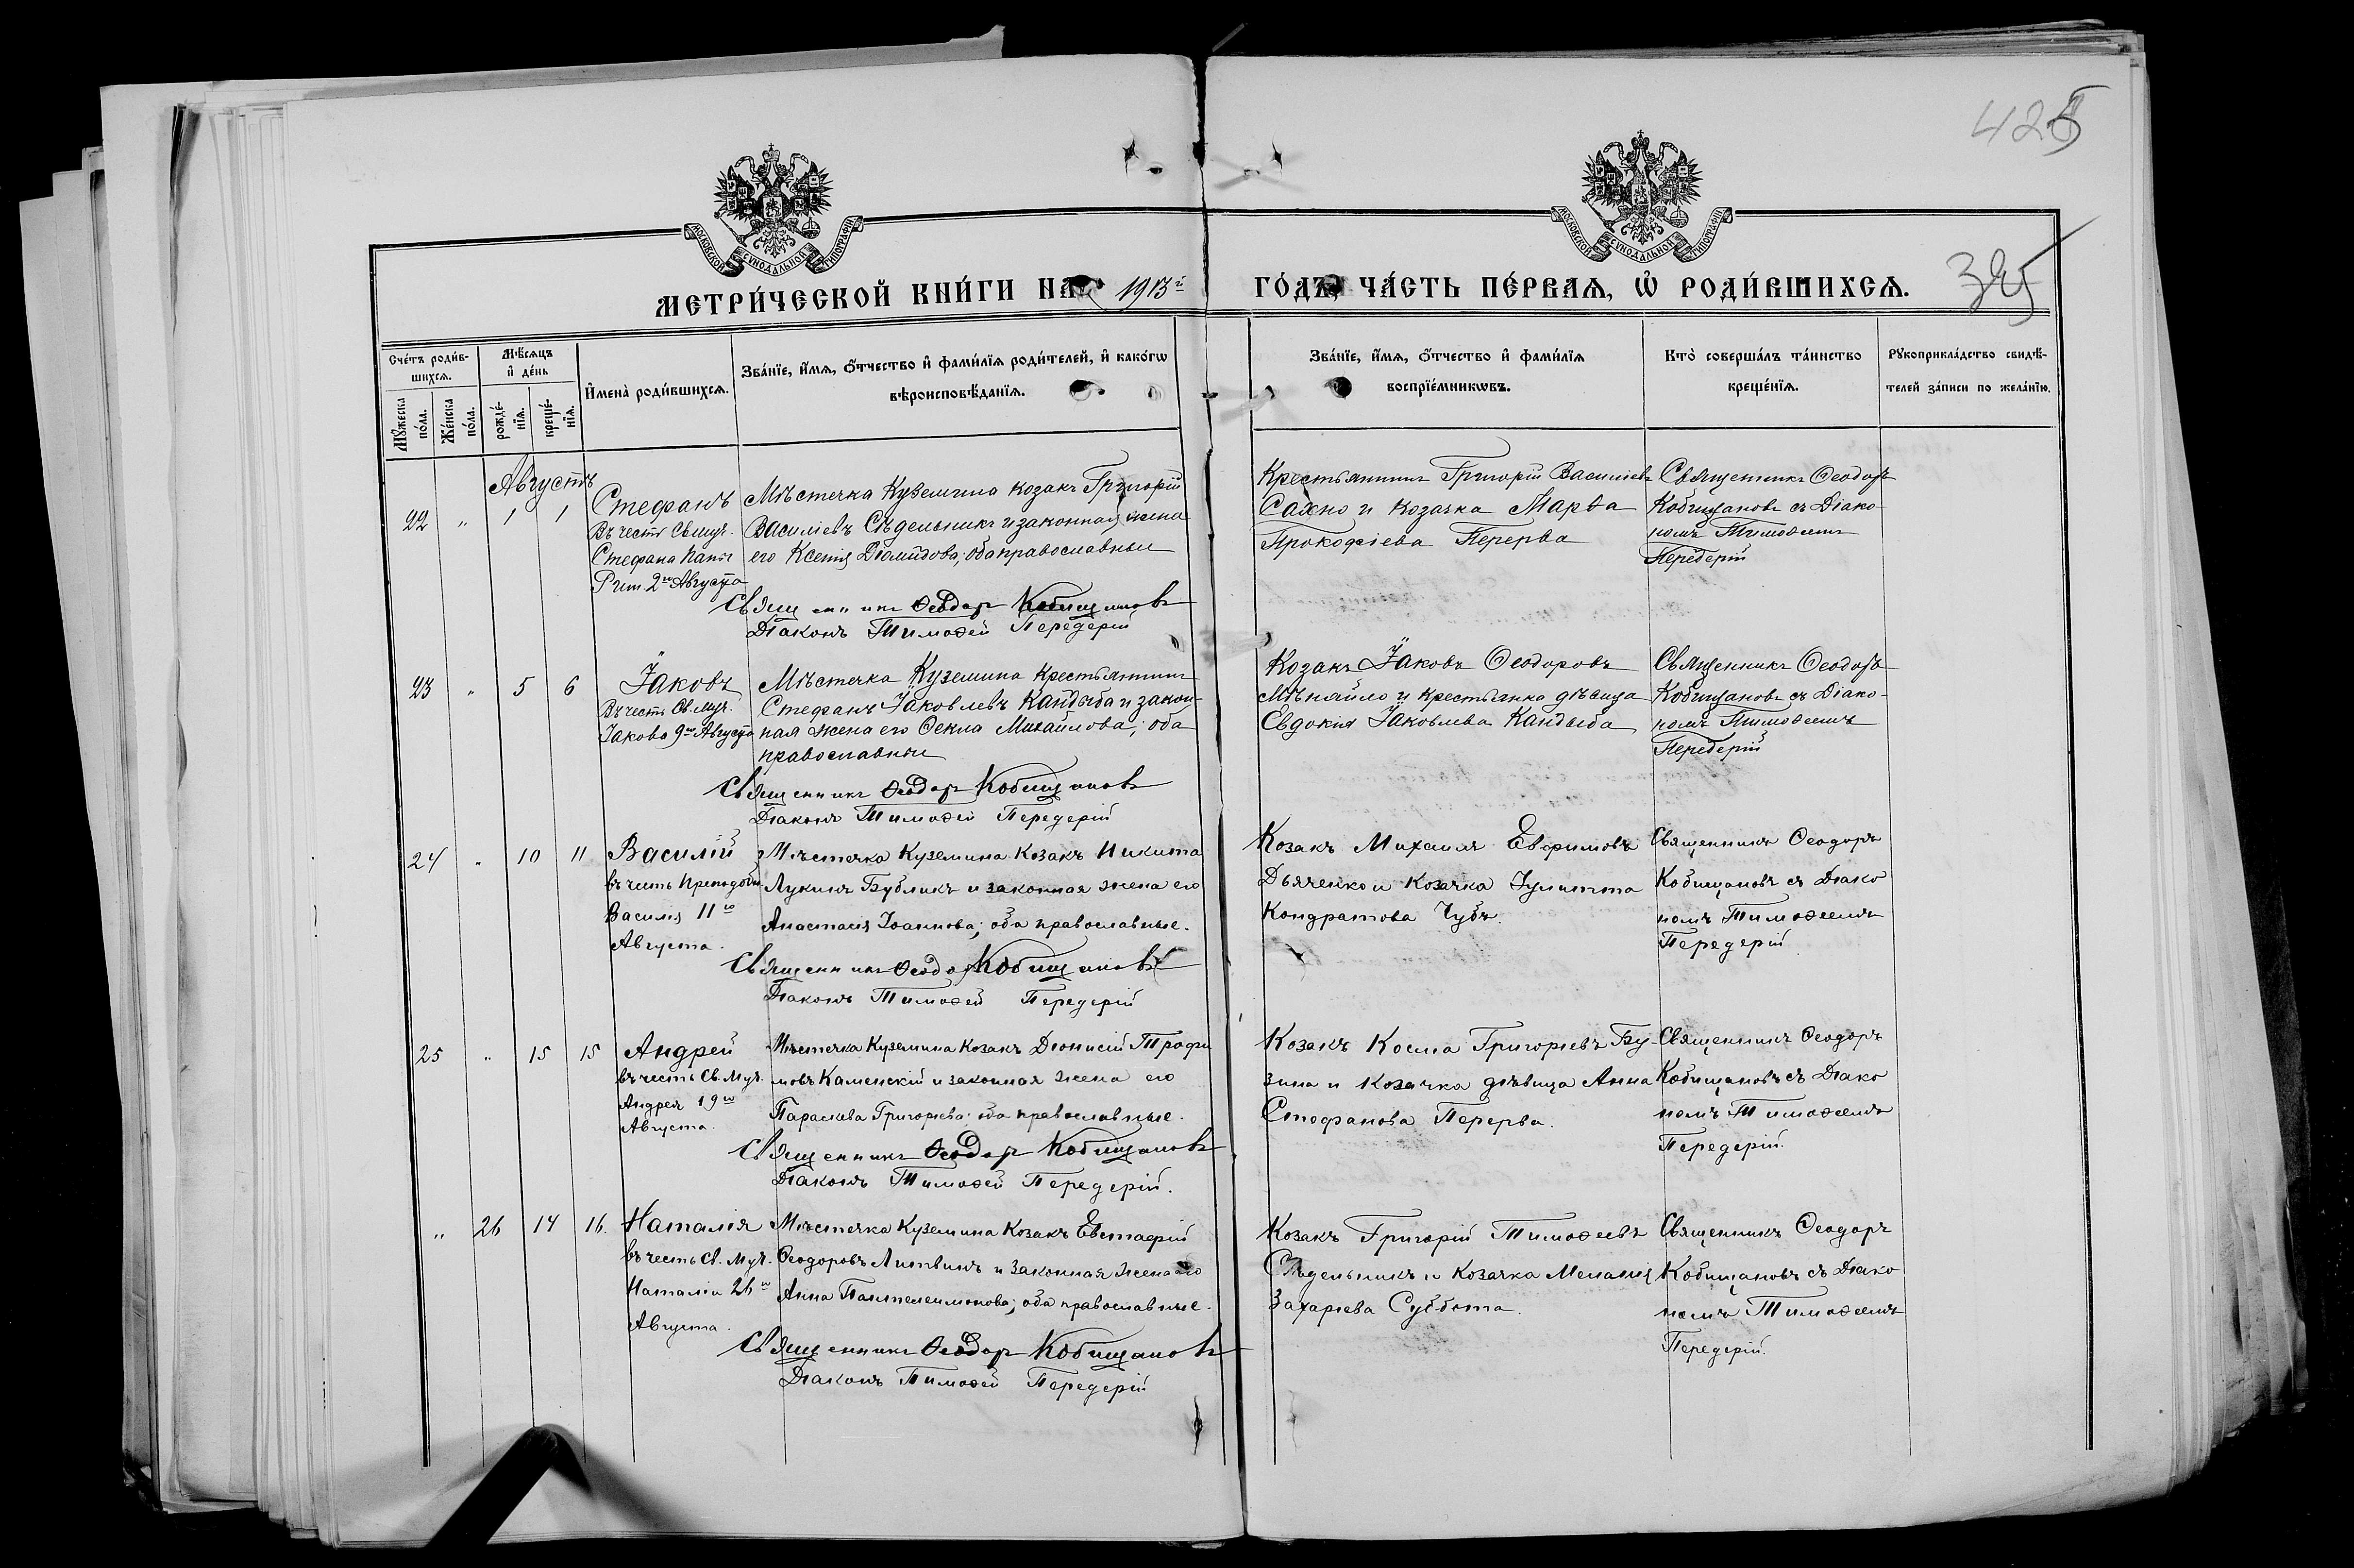 425
МОСКОВСКОЙ СѴНОДАЛЬНОЙ ТИПОГРАФІИ
МОСКОВСКОЙ СѴНОДАЛЬНОЙ ТИПОГРАФІИ
МЕТРИ́ЧЕСКОЙ КНИ́ГИ НА 1913й ГО́ДЪ, ЧА́СТЬ ПЕ́РВАѦ, Ѡ҆ РОДИ́ВШИХСѦ.
Сче́тъ роди́в-
шихсѧ.
Мꙋ́жеска по́ла.
Же́нска по́ла.
Мѣ́сѧцъ
и҆ де́нь
рожде́-
нїѧ.
креще́-
нїѧ.
И҆мена̀ роди́вшихсѧ.
Зва́нїе, и҆́мѧ, ѻ҆́тчество и҆ фами́лїѧ роди́телей, и҆ како́гѡ
вѣроисповѣ́данїѧ.
Зва́нїе, и҆́мѧ, ѻ҆́тчество и҆ фами́лїѧ
воспрїе́мникѡвъ.
Кто̀ соверша́лъ та́инство
креще́нїѧ.
Рꙋкоприкла́дство свидѣ́-
телей за́писи по жела́нїю.
Августъ
22 " 1 1
Стефанъ
Въ честь Св. муч.
Стефана Папы
Рим 2го Августа
Мѣстечка Куземина козакъ Григорій
Василіевъ Сѣдельникъ и законная жена
его Ксенія Діомидова; оба православные
Священникъ Ѳеодоръ Кобищановъ
Діаконъ Тимоѳей Передерій
Крестьянинъ Григорій Василіевъ
Сахно и козачка Марѳа
Прокофіева Перерва
Священникъ Ѳеодоръ
Кобищановъ съ Діако-
номъ Тимоѳеемъ
Передерій
23 " 5 6
Іаковъ
Въ честь Св. муч.
Іакова 9го Августа
Мѣстечка Куземина крестьянинъ
Стефанъ Іаковлевъ Кандыба и закон-
ная жена его Ѳекла Михайлова; оба
православные
Священникъ Ѳеодоръ Кобищановъ
Діаконъ Тимоѳей Передерій
Козакъ Іаковъ Ѳеодоровъ
Мѣняйло и крестьянка дѣвица
Евдокія Іаковлева Кандыба
Священникъ Ѳеодоръ
Кобищановъ съ Діако-
номъ Тимоѳеемъ
Передерій
24 " 10 11
Василій
въ честь Преподобн.
Василія 11го
Августа.
Мѣстечка Куземина козакъ Никита
Лукинъ Бубликъ и законная жена его
Анастасія Іоаннова; оба православные.
Священникъ Ѳеодоръ Кобищановъ
Діаконъ Тимоѳей Передерій
Козакъ Михаилъ Евфимовъ
Дьяченко и козачка Іулитта
Кондратова Чубъ.
Священникъ Ѳеодоръ
Кобищановъ съ Діако
номъ Тимоѳеемъ
Передерій
25 " 15 15
Андрей
въ честь Св. Муч.
Андрея 19го
Августа.
Мѣстечка Куземина козакъ Діонисій Трофи
мовъ Каменскій и законная жена его
Параскева Григоріева; оба православные.
Священникъ Ѳеодоръ Кобищановъ
Діаконъ Тимоѳей Передерій.
Козакъ Косма Григоріевъ Бу-
зина и козачка дѣвица Анна
Стефанова Перерва.
Священникъ Ѳеодоръ
Кобищановъ съ Діако
номъ Тимоѳеемъ
Передерій.
" 26 14 16.
Наталія
въ честь Св. Муч.
Наталіи 26го
Августа.
Мѣстечка Куземина козакъ Евстафій
Ѳеодоровъ Литвинъ и законная жена его
Анна Пантелеимонова; оба православные.
Священникъ Ѳеодоръ Кобищановъ
Діаконъ Тимоѳей Передерій
Козакъ Григорій Тимоѳеевъ
Сѣдельникъ и козачка Меланія
Захаріева Суббота.
Священникъ Ѳеодоръ
Кобищановъ съ Діако
номъ Тимоѳеемъ
Передерій.